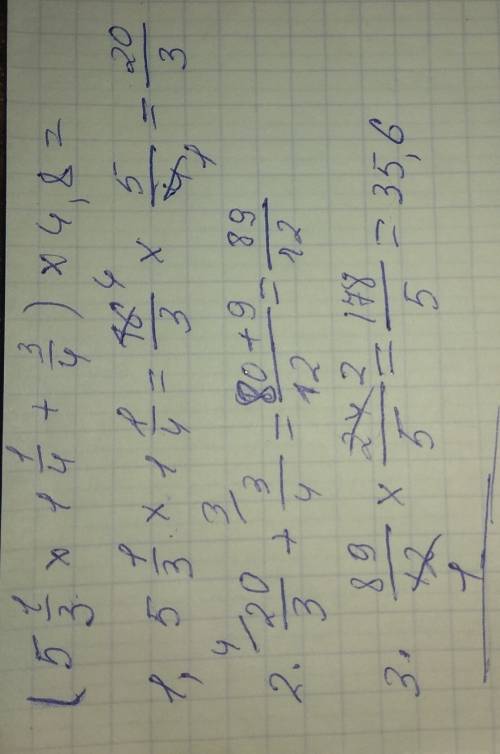 (5 1/3 × 1 1/4 + 3/4) × 4,8 =
1, 5 1/3 × 1 1/4 = 16 4/3 × 5/4 1 = 20/3
2. 4/ 20/3 + 3/ 3/4 = 80+9/12 = 89/12
3. 89/12 1 × 24 2/5 = 178/5 = 35,6